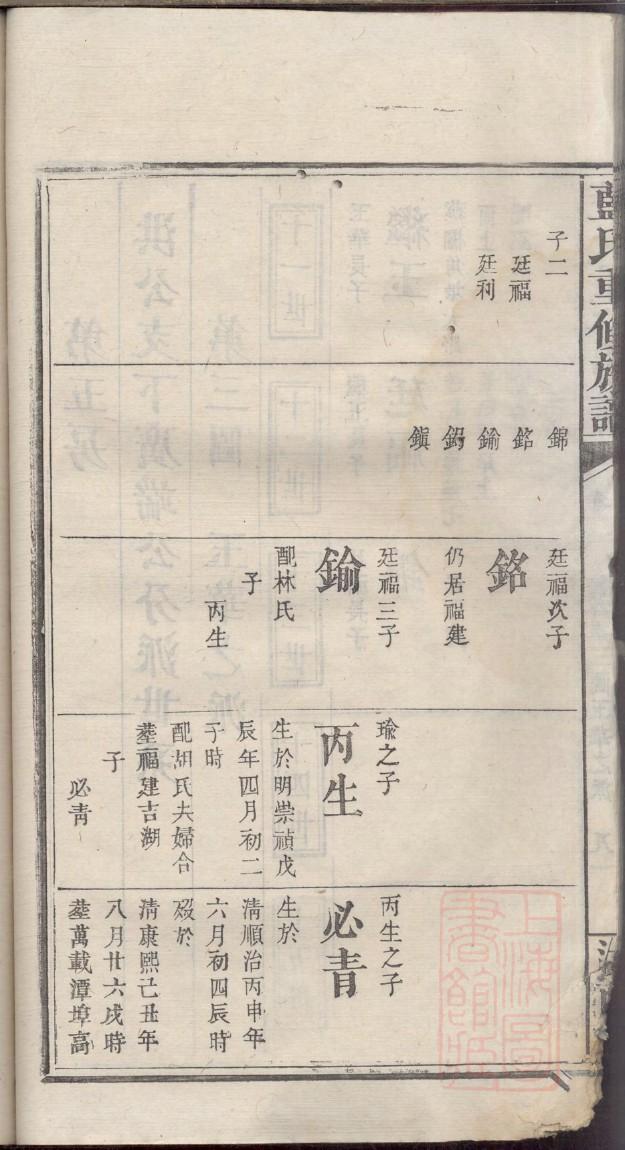 藍氏重修族譜
子二
廷福
廷利
錦
銘
鍮
鎮
廷福次子
銘
仍居福建
廷福三子
鍮
配林氏
子
丙生
瑜之子
丙生
生於明崇禎戊
辰年四月初二
子時
配胡氏夫婦合
塟福建吉湖
子
必青
丙生之子
必青
生於
清順治丙申年
六月初四辰時
歿於
清康熙己丑年
八月廿六戌時
塟萬載潭埠高
上海圖
書館藏